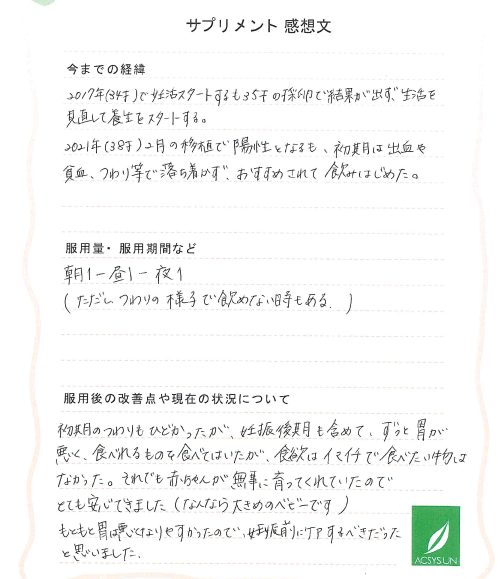 サプリメント 感想文
今までの経緯
2017年(34才)で妊活スタートするも35才の採卵で結果が出ず、生活を
見直して養生をスタートする。
2021年(38才)2月の移植で陽性となるも、初期は出血や
貧血、つわり等で落ち着かず、おすすめされて飲みはじめた。
服用量・服用期間など
朝1－昼1－夜1
(ただし つわりの様子で飲めない時もある。)
服用後の改善点や現在の状況について
初期のつわりもひどかったが、妊娠後期も含めて、ずっと胃が
悪く、食べれるものを食べてはいたが、食欲はイマイチで食べたい物は
なかった。それでも赤ちゃんが無事に育ってくれていたので
とても安心できました(なんなら大きめのベビーです)
もともと胃は悪くなりやすかったので、妊娠前にケアするべきだった
と思いました。
ACSYSUN